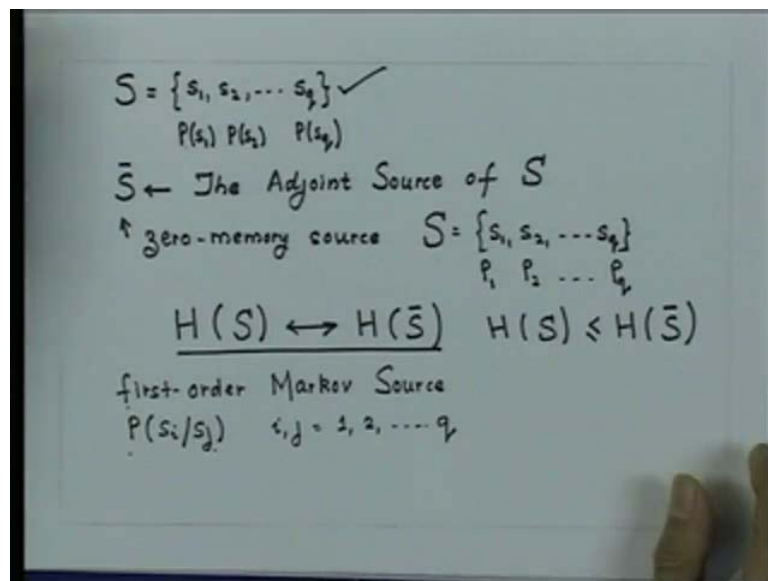 S = {s₁, s₂, --- s_q} ✓
P(s₁) P(s₂) P(s_q)
S̄ ← The Adjoint Source of S
↑ zero-memory source S = {s₁, s₂, --- s_q}
P₁ P₂ .... P_q
H(S) ↔ H(S̄) H(S) ≤ H(S̄)
first-order Markov Source
P(si/sj) i,j = 1, 2, ---- q